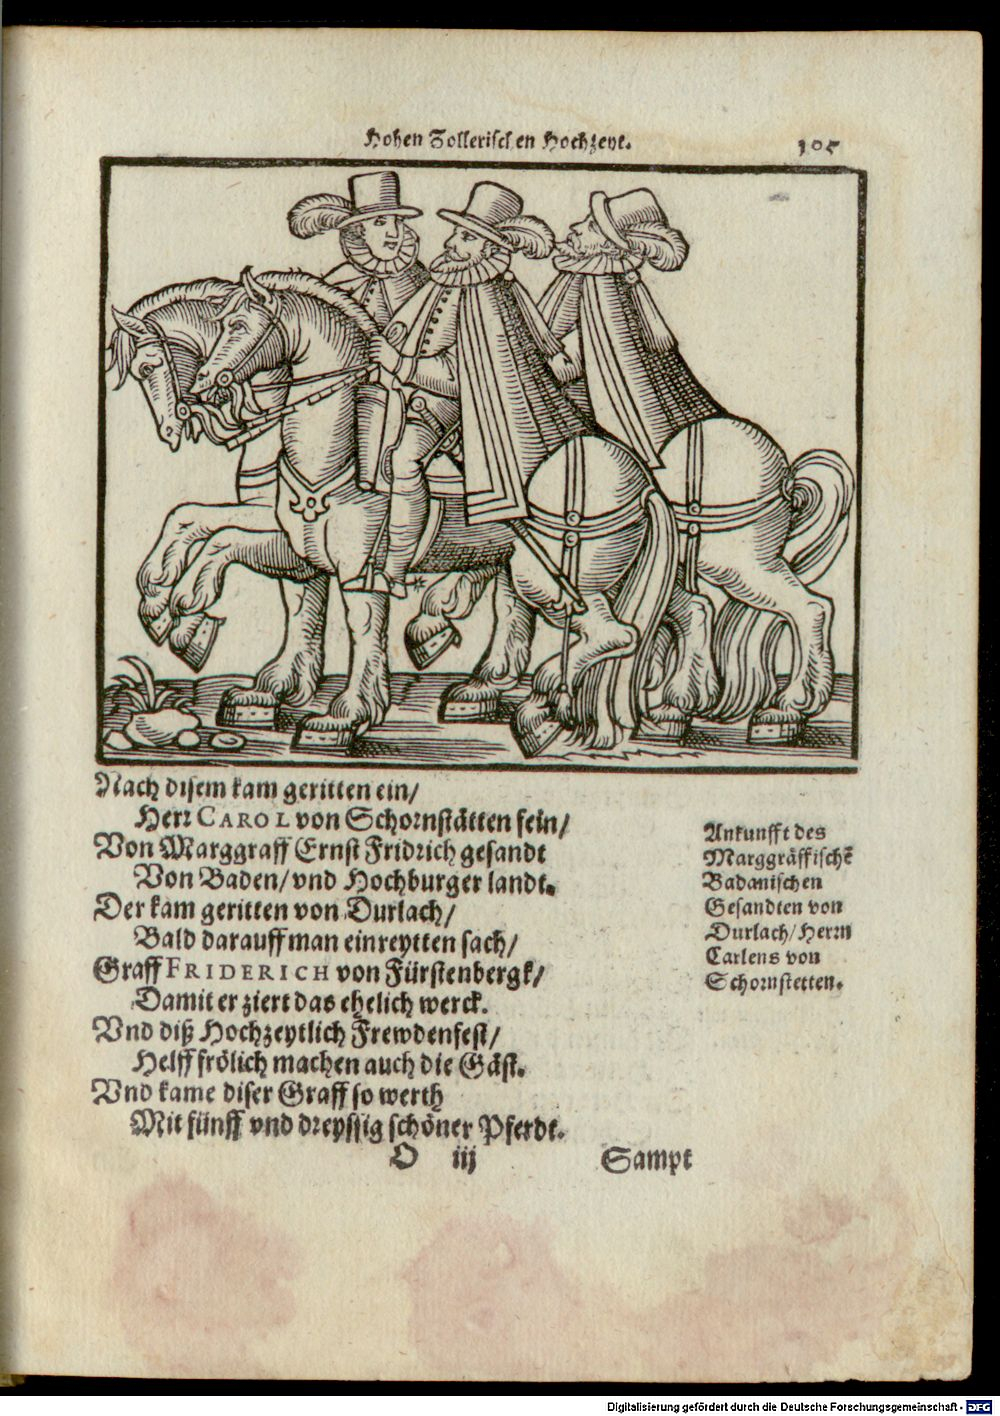 Hohen Zollerischen Hochzeyt. 105
Nach disem kam geritten ein/
Herr CAROL von Schornstätten fein/
Von Marggraff Ernst Fridrich gesandt
Von Baden/ vnd Hochburger landt.
Der kam geritten von Durlach/
Bald darauff man einreytten sach/
Graff FRIDERICH von Fürstenbergk/
Damit er ziert das ehelich werck.
Vnd diß Hochzeytlich Frewdenfest/
Helff frölich machen auch die Gäst.
Vnd kame diser Graff so werth
Mit fünff vnd dreyssig schöner Pferdt.
O iij Sampt
Ankunfft des
Marggräffischẽ
Badanischen
Gesandten von
Durlach/ Herrn
Carlens von
Schornstetten.
Digitalisierung gefördert durch die Deutsche Forschungsgemeinschaft - DFG